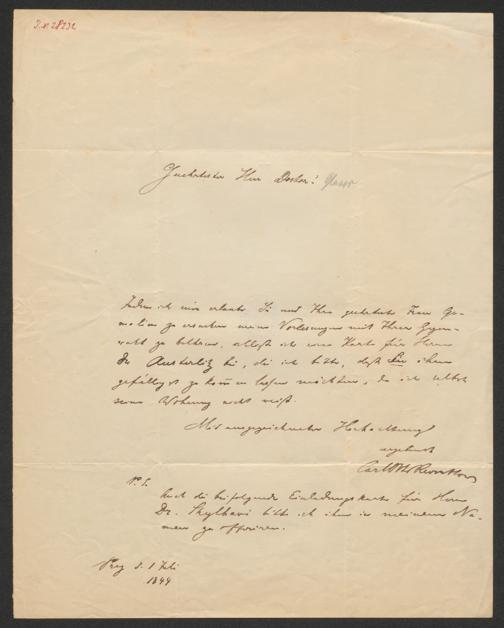 I.N. 28232
Geehrtester Herr Doctor! Glaser
Indem ich mir erlaube, Sie und Ihre geehrteste Frau Ge-
malin zu ersuchen meine Vorlesungen mit Ihrer Gegen-
wart zu beehren, ich eine Karte für Herrn
Dr Austerlitz bei, die ich bitte, daß Sie ihm
gefälligst zukommen lassen möchten, da ich selbst
seine Wohnung nicht weiß.
Mit ausgezeichneter Hochachtung
ergebenst
Carl
N. S.
Auch die beifolgende Einladungskarte für Herrn
Dr. bitte ich ihm in meinem Na-
men zu offeriren.
Prag d. 1 Juli
1844